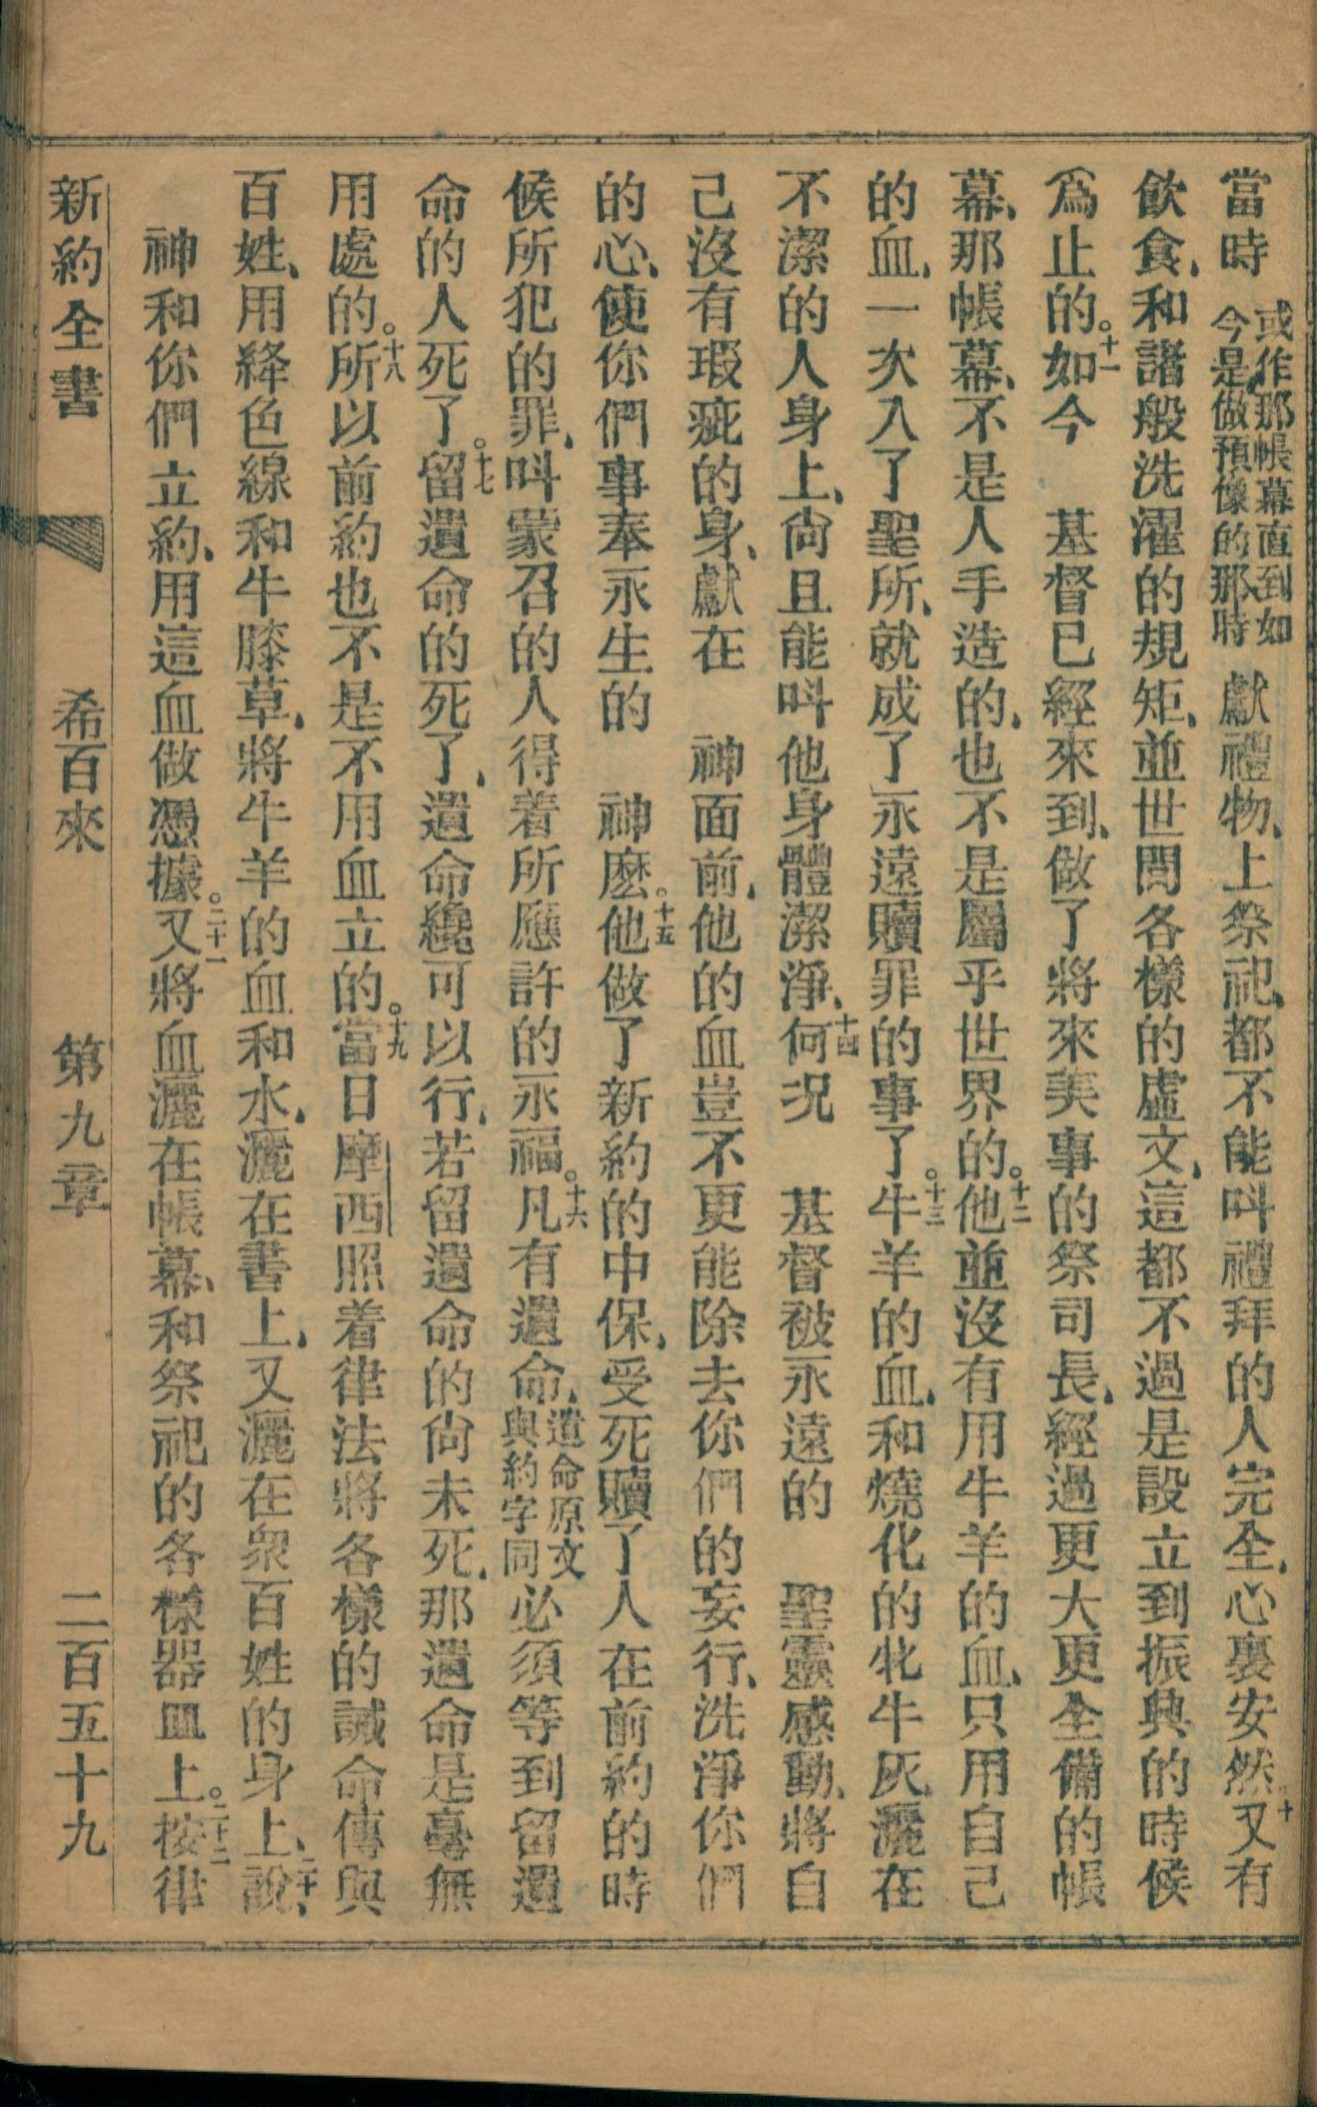 當時或作那帳幕直到如今是做預像的那時獻禮物、上祭祀、都不能呌禮拜的人完全、心裏安然、十又有
飲食、和諸般洗濯的規矩、並世間各樣的虛文、這都不過是設立到振興的時候
爲止的。十一如今 基督已經來到、做了將來美事的祭司長、經過更大更全備的帳
幕、那帳幕、不是人手造的、也不是屬乎世界的。十二他並沒有用牛羊的血、只用自己
的血、一次入了聖所、就成了永遠贖罪的事了。十三牛羊的血、和燒化的牝牛灰、灑在
不潔的人身上、尙且能呌他身體潔淨、十四何况 基督被永遠的 聖靈感動、將自
己沒有瑕疵的身、獻在 神面前、他的血豈不更能除去你們的妄行、洗淨你們
的心、使你們事奉永生的 神麽。十五他做了新約的中保、受死贖了人在前約的時
候所犯的罪、呌蒙召的人得着所應許的永福。十六凡有遺命、遺命原文與約字同必須等到留遺
命的人死了。十七留遺命的死了、遺命纔可以行、若留遺命的尙未死、那遺命是毫無
用處的。十八所以前約也不是不用血立的。十九當日摩西照着律法將各樣的誡命傳與
百姓、用絳色線和牛膝草、將牛羊的血和水、灑在書上、又灑在衆百姓的身上、二十說、
神和你們立約、用這血做憑據。二十一又將血灑在帳幕、和祭祀的各樣器皿上。二十二按律
新約全書 希百來 第九章 二百五十九